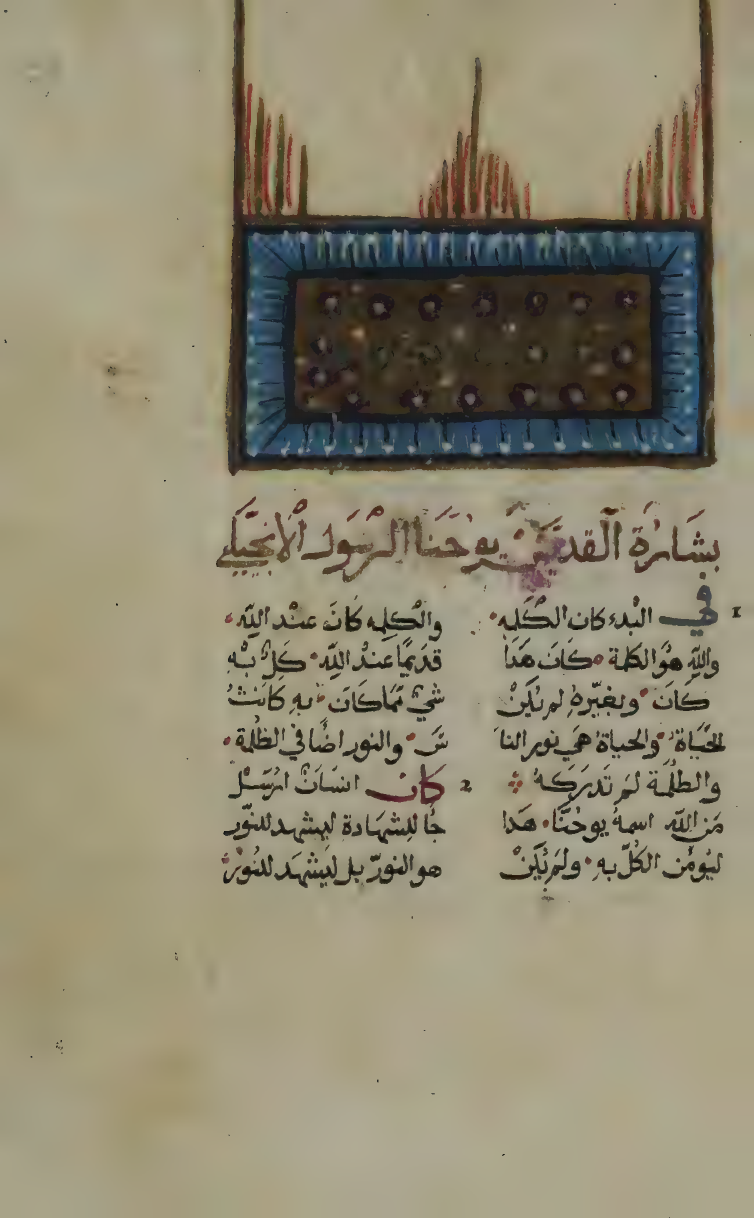 بشَارَة القديسْ يوحَنا الرسَول الانجيلي
1 في البدء كان الكلمه · والكلمه كانَ عند الله ·
والله هوَ الكلمة · كانَ هَذا قديمًا عندْ الله · كلٌ بهِ
كانَ · وبغيره لم يكنْ شيٌ ممَا كانَ · به كانتْ
الحَيَاة · والحياة هيَ نور النا سَ · والنور اضَا في الظلمة ·
والظلمَة لم تدركه ⁘ 2 كان انسَانٌ ارسَل
مَن الله اسمهُ يوحنَّا · هَذا جا للشهَادة ليشهَد للنوُر
ليومن الكلّ بهِ · ولم يكنْ هو النورّ بل ليشهَد للنُورْ ·